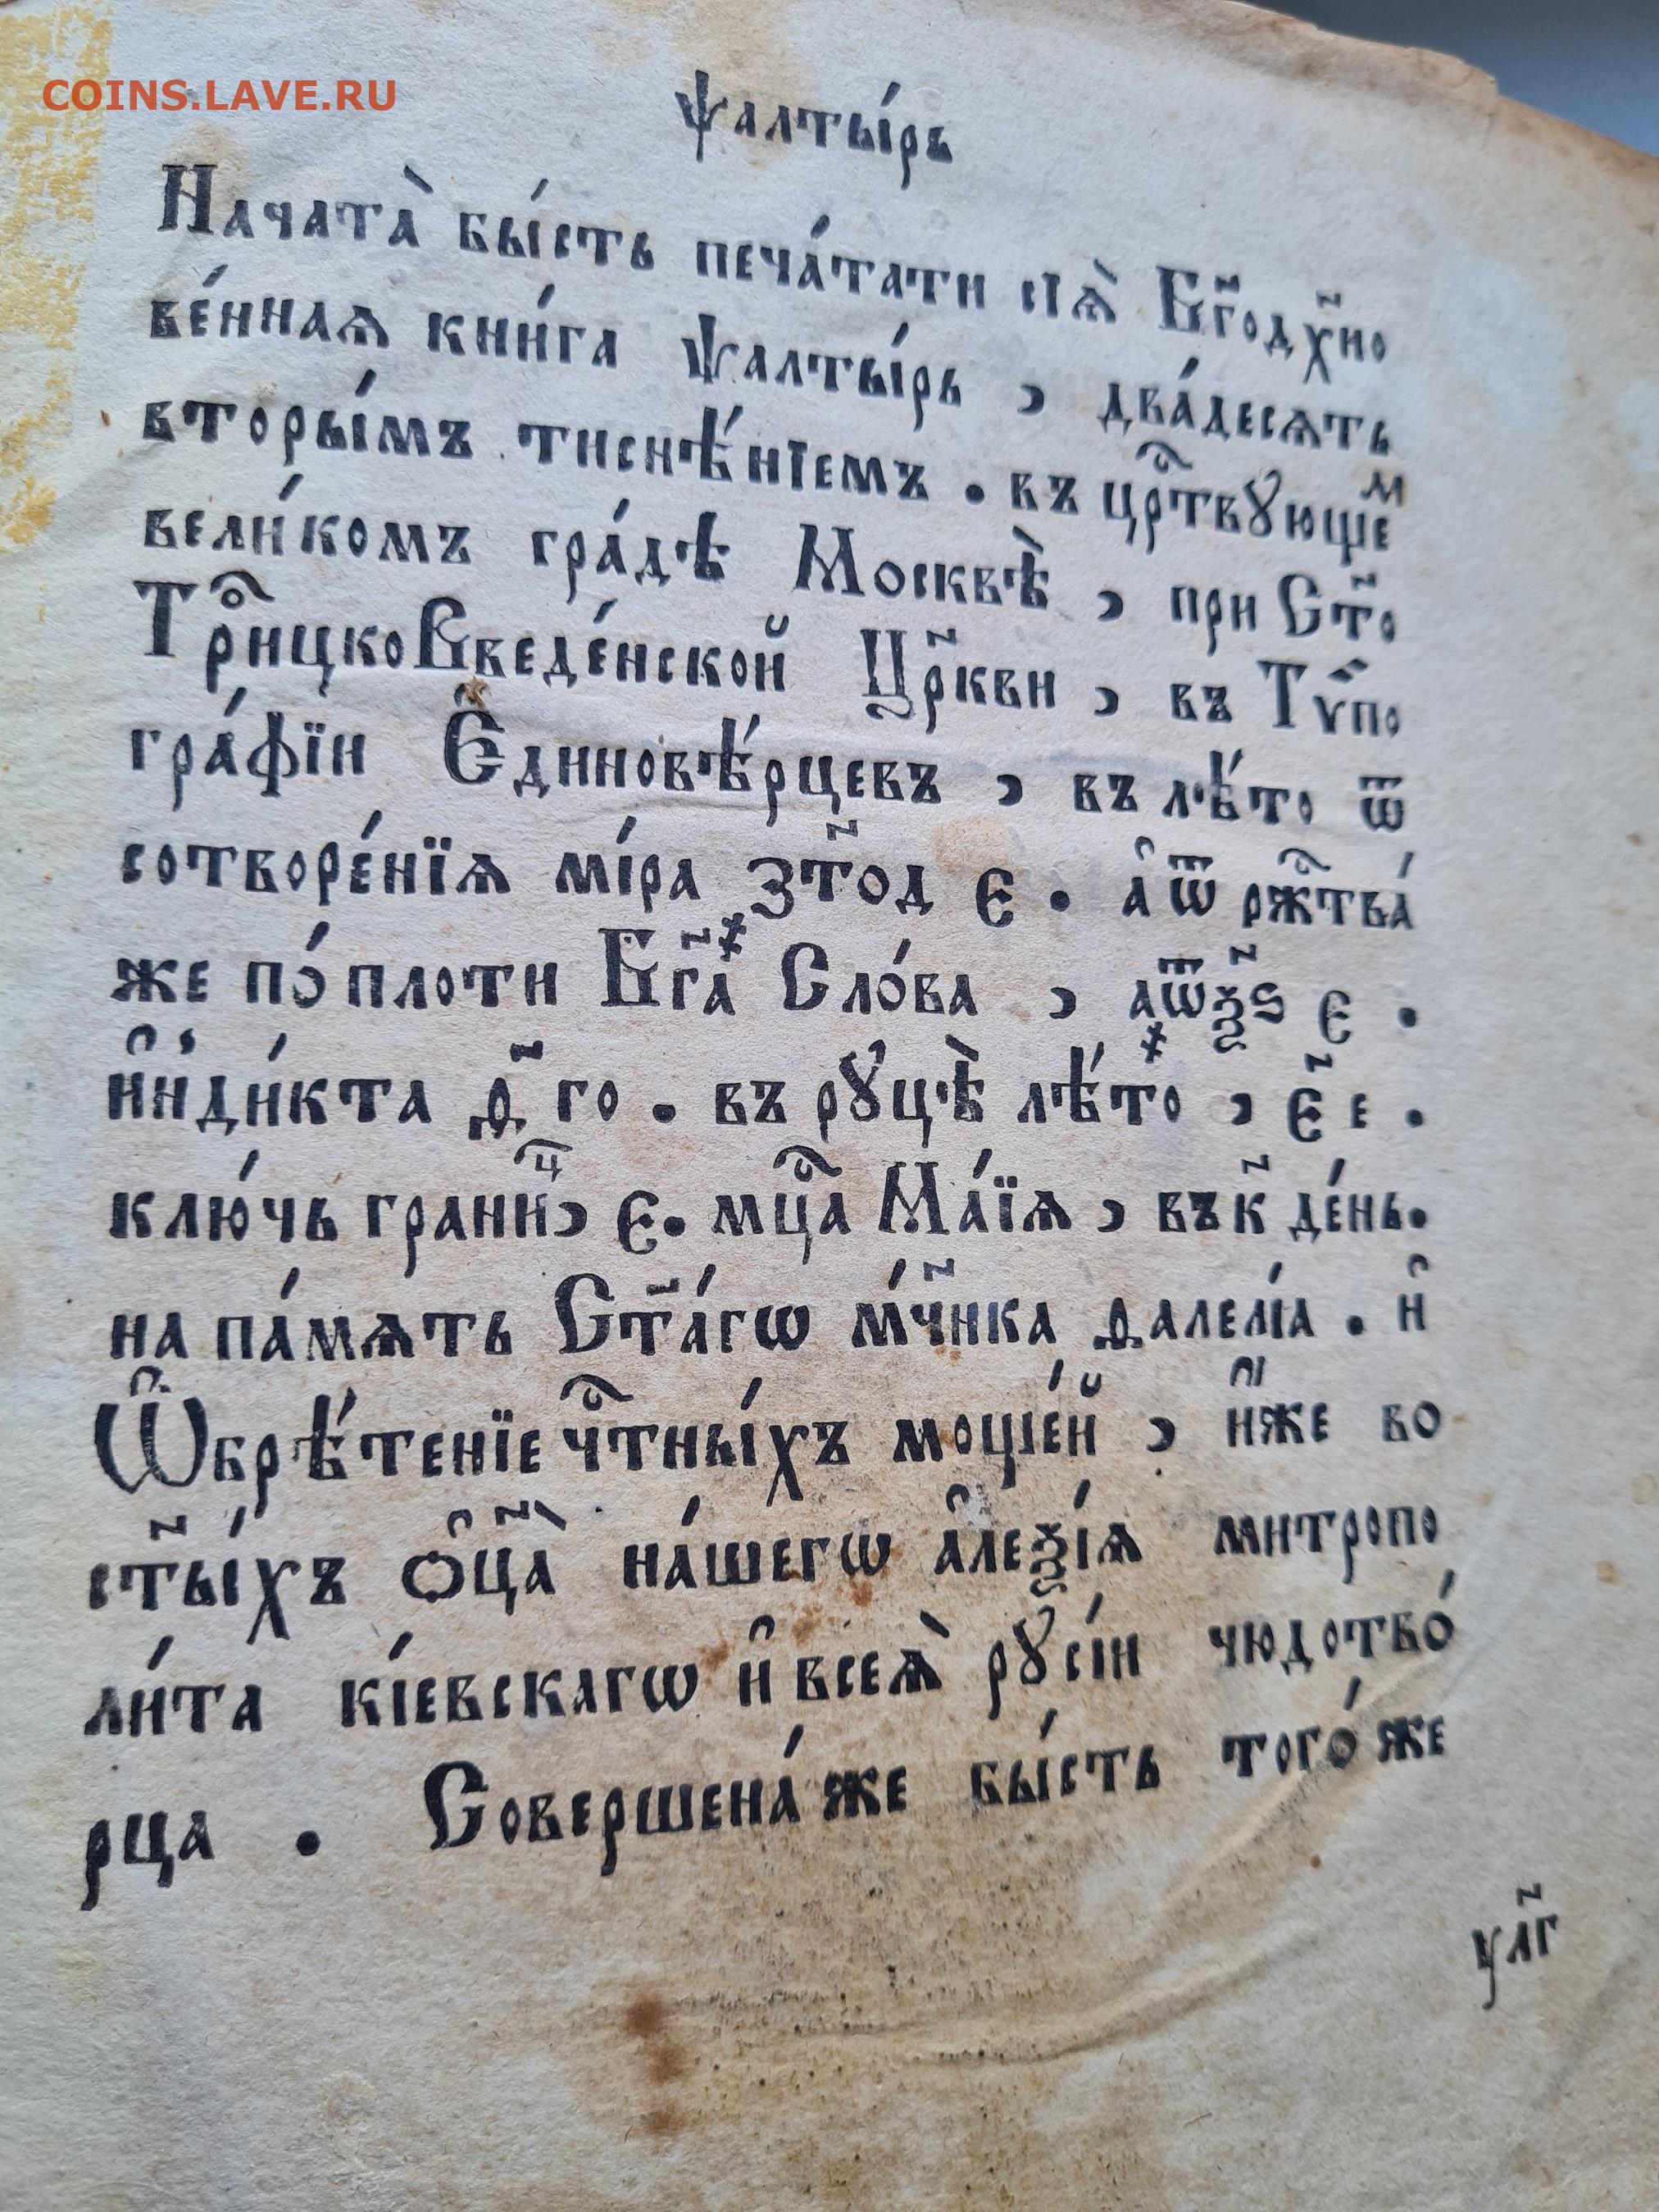 COINS.LAVE.RU
Ѱалты́рь
Начата̀ бы́сть печа́тати сїѧ̀ Бг҃одх҃но
ве́ннаѧ кни́га ѱалты́рь , два́десѧть
вторы́мъ тиснѣ́нїемъ . въ црⷭ҇твꙋющеⷨ
вели́комъ гра́дѣ Москвѣ̀ , при Ст҃о
Трⷪ҇ицкоВведе́нской Цр҃кви , въ Тѵ̑по
гра́фїи Є҆диновѣ́рцевъ , въ лѣ́то ѿ
сотворе́нїѧ мі́ра зт҃од є . а҆ ѿ ржⷭ҇тва́
же по́ плоти Бг҃а Сло́ва , аѿѯ҃ѕ є .
и҆нди́кта д҃ го . въ рꙋцѣ̀ лѣ́то , є҃ е .
клю́чь граннⷱ҇ , є . мцⷭ҇а Ма́їѧ , въ к҃ де́нь .
на па́мѧть Ст҃а́гѡ м́ч҃нка далелі́а . и҆
Ѡ҆брѣ́тенїе чⷭ҇тны́хъ моще́й , и҆́же во
ст҃ы́хъ ѻ҆ц҃а̀ на́шегѡ а҆леѯі́ѧ митропо
ли́та кі́евскагѡ и҆ всеѧ̀ рꙋсі́и чюдотво́
рца . Совершена́ же бы́сть того́ же
ул҃г